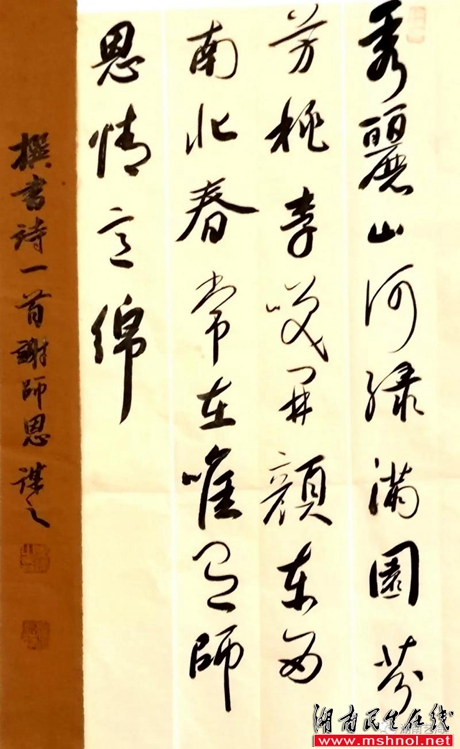 秀麗山河緑滿園芬
芳桃李咲開顔東西
南北春常在唯有師
恩情意綿
撰書詩一首謝師恩
湖南民生在线
www.mshnol.net